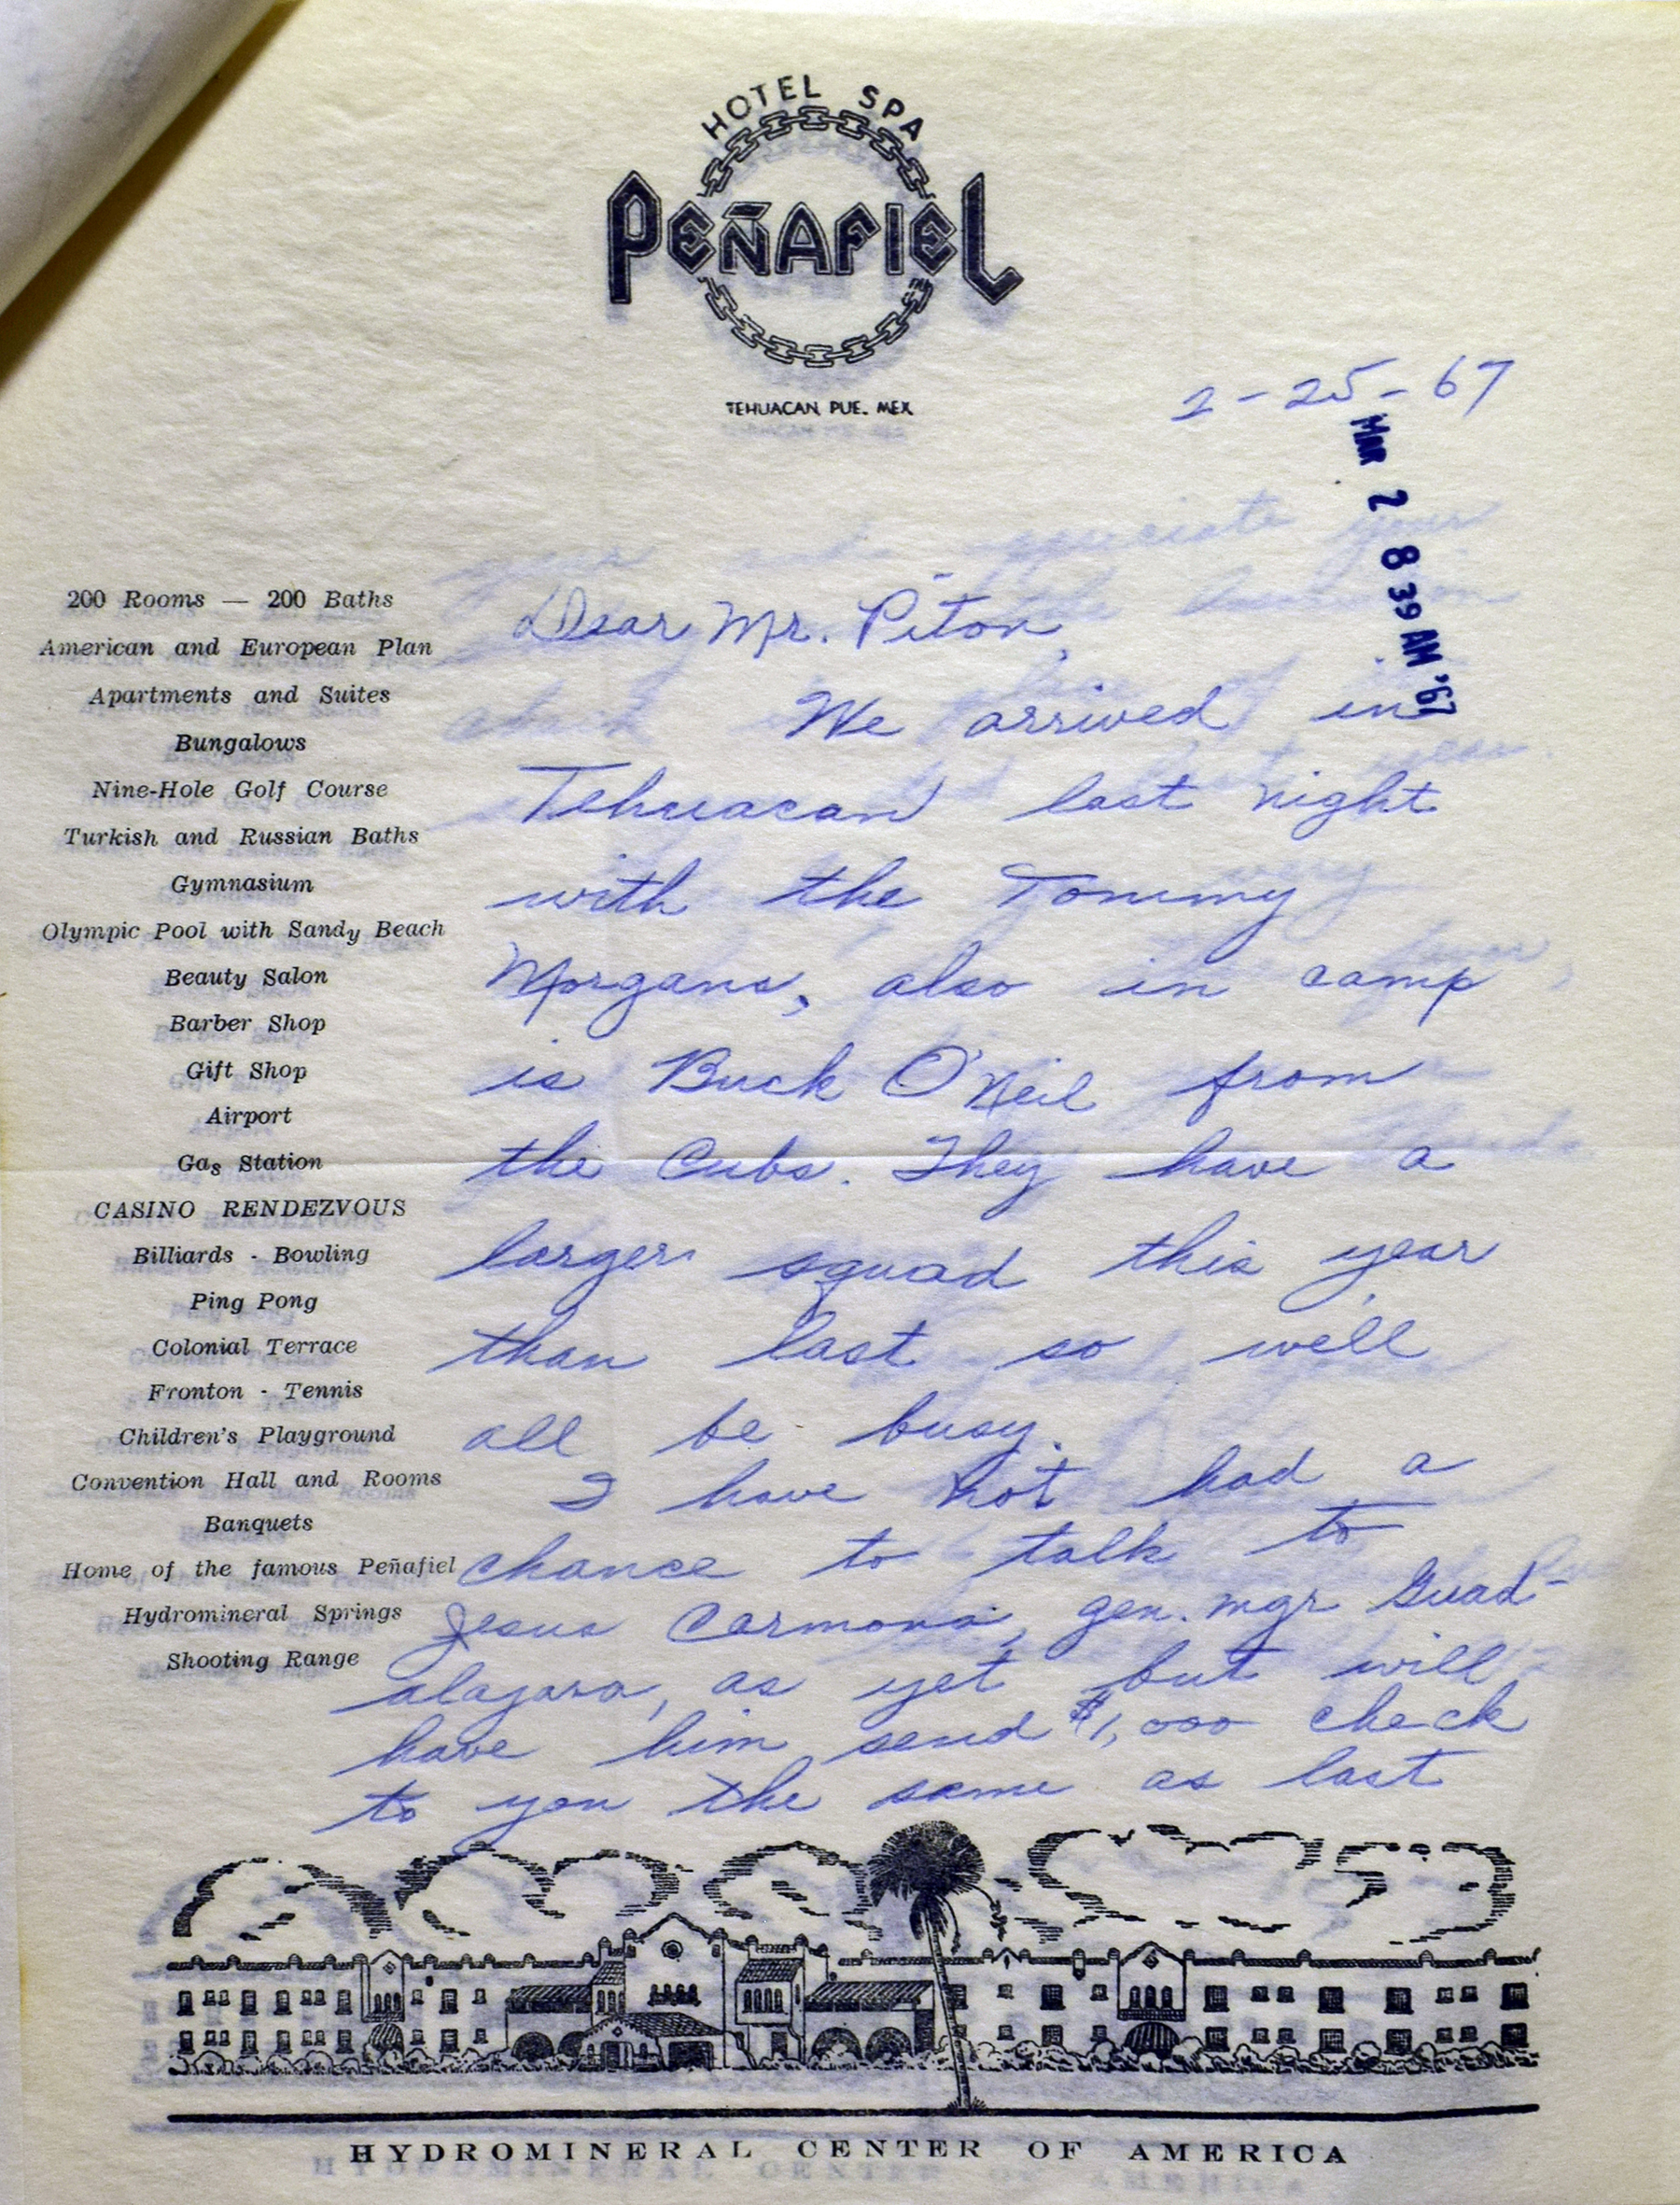 HOTEL SPA
PEÑAFIEL
TEHUACAN, PUE. MEX.
2-25-67
MAR 2 8 39 AM '67
200 Rooms — 200 Baths
American and European Plan
Apartments and Suites
Bungalows
Nine-Hole Golf Course
Turkish and Russian Baths
Gymnasium
Olympic Pool with Sandy Beach
Beauty Salon
Barber Shop
Gift Shop
Airport
Gas Station
CASINO RENDEZVOUS
Billiards - Bowling
Ping Pong
Colonial Terrace
Fronton - Tennis
Children's Playground
Convention Hall and Rooms
Banquets
Home of the famous Peñafiel
Hydromineral Springs
Shooting Range
Dear Mr. Piton,
We arrived in
Tehuacan last night
with the Tommy
Morgans, also in camp
is Buck O'Neil from
the Cubs. They have a
larger squad this year
than last so we'll
all be busy.
I have not had a
chance to talk to
Jesus Carmona, gen. mgr Guad-
alajara, as yet but will
have him send $1,000 check
to you the same as last
HYDROMINERAL CENTER OF AMERICA